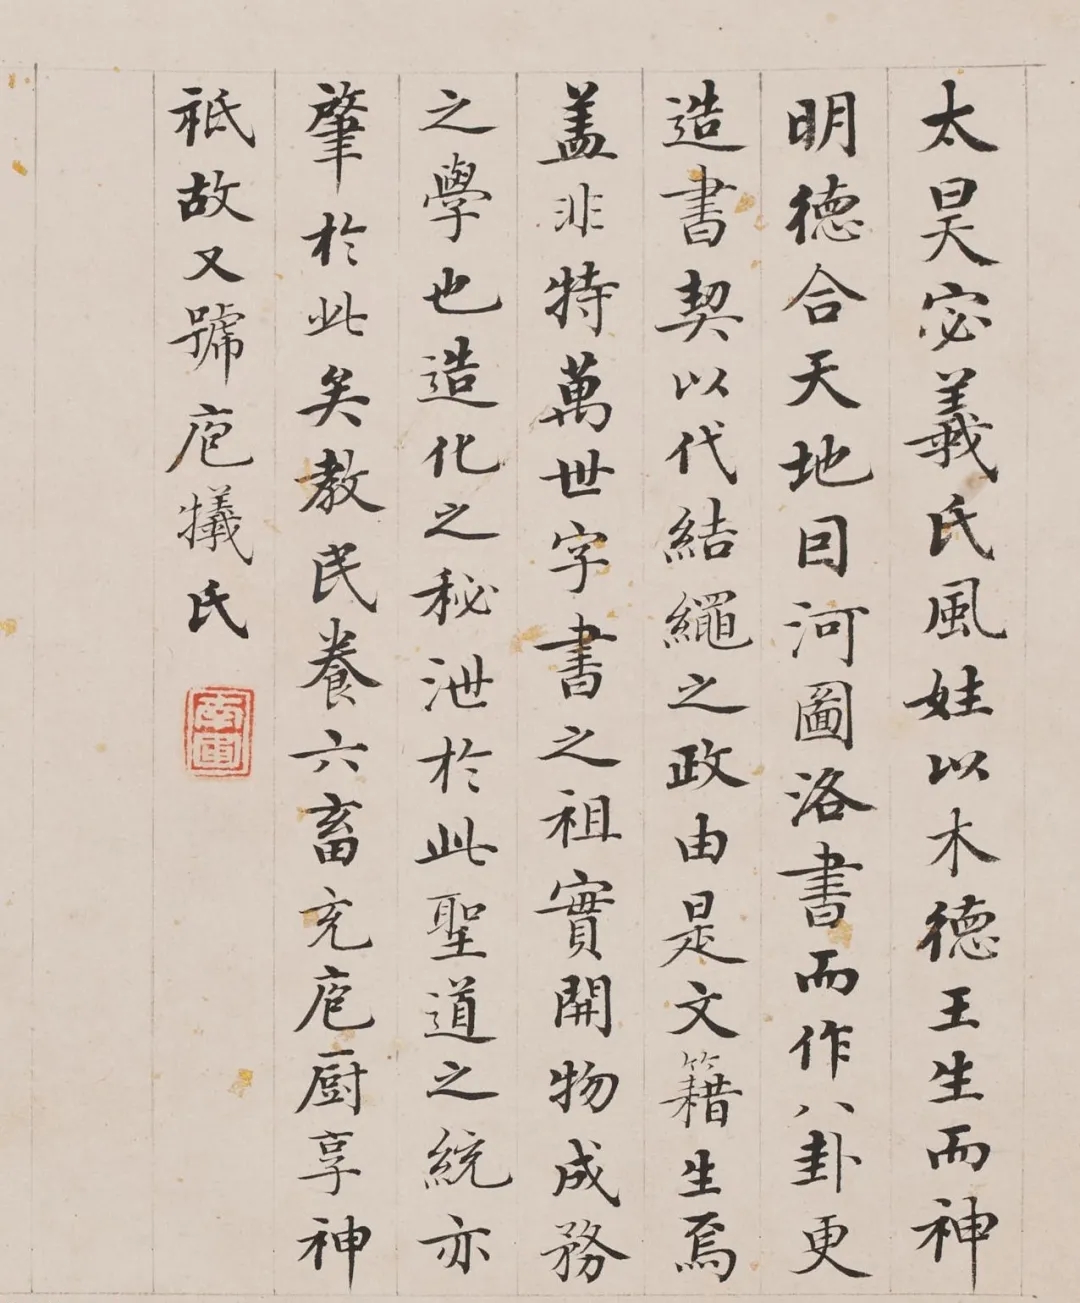 太昊宓羲氏風姓以木德王生而神
明德合天地因河圖洛書而作八卦更
造書契以代結繩之政由是文籍生焉
蓋非特萬世字書之祖實開物成務
之學也造化之秘泄於此聖道之統亦
肇於此矣教民養六畜充庖厨享神
祗故又號庖犧氏